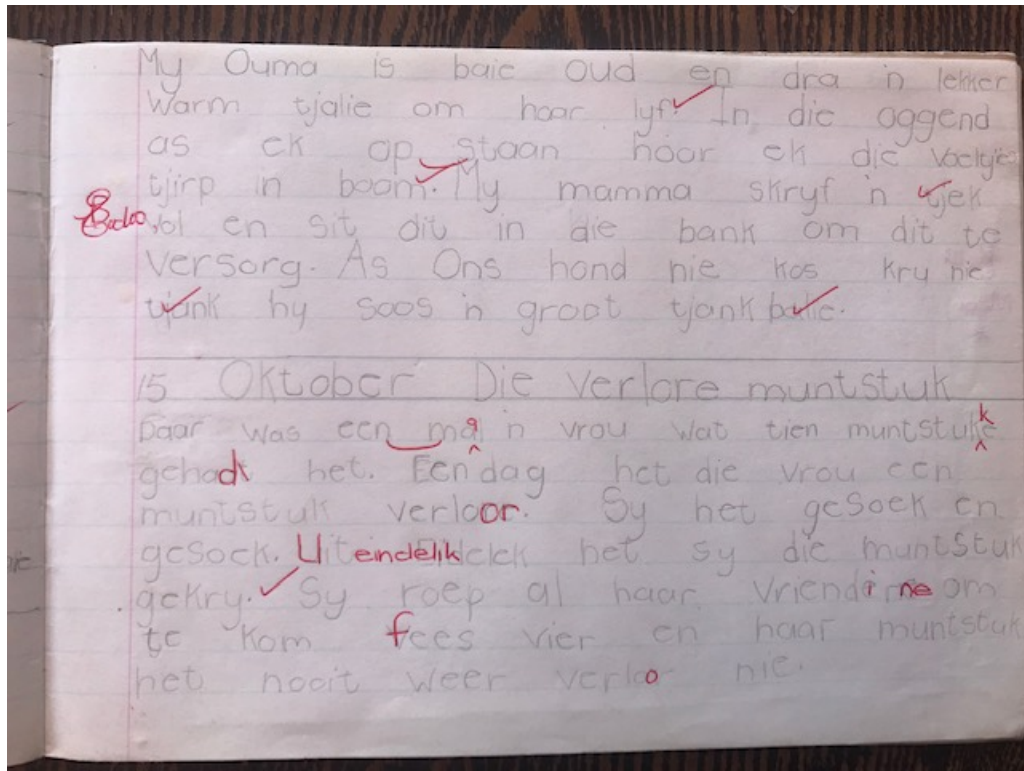 My Ouma is baie oud en dra 'n lekker
Warm tjalie om haar lyf. In die oggend
as ek op staan hoor ek die voeltjie
tjirp in boom. My mamma skryf 'n tjek
vol en sit dit in die bank om dit te
versorg. As Ons hond nie kos kry nie
tjank hy soos 'n groot tjank balie.
15 Oktober Die verlore muntstuk
Daar was een maal 'n vrou wat tien muntstukke
gehadt het. Een dag het die vrou een
muntstuk verloor. Sy het gesoek en
gesoek. Uiteindelik het sy die muntstuk
gekry. Sy roep al haar vriendinne om
te kom fees vier en haar muntstuk
het nooit weer verloo nie.